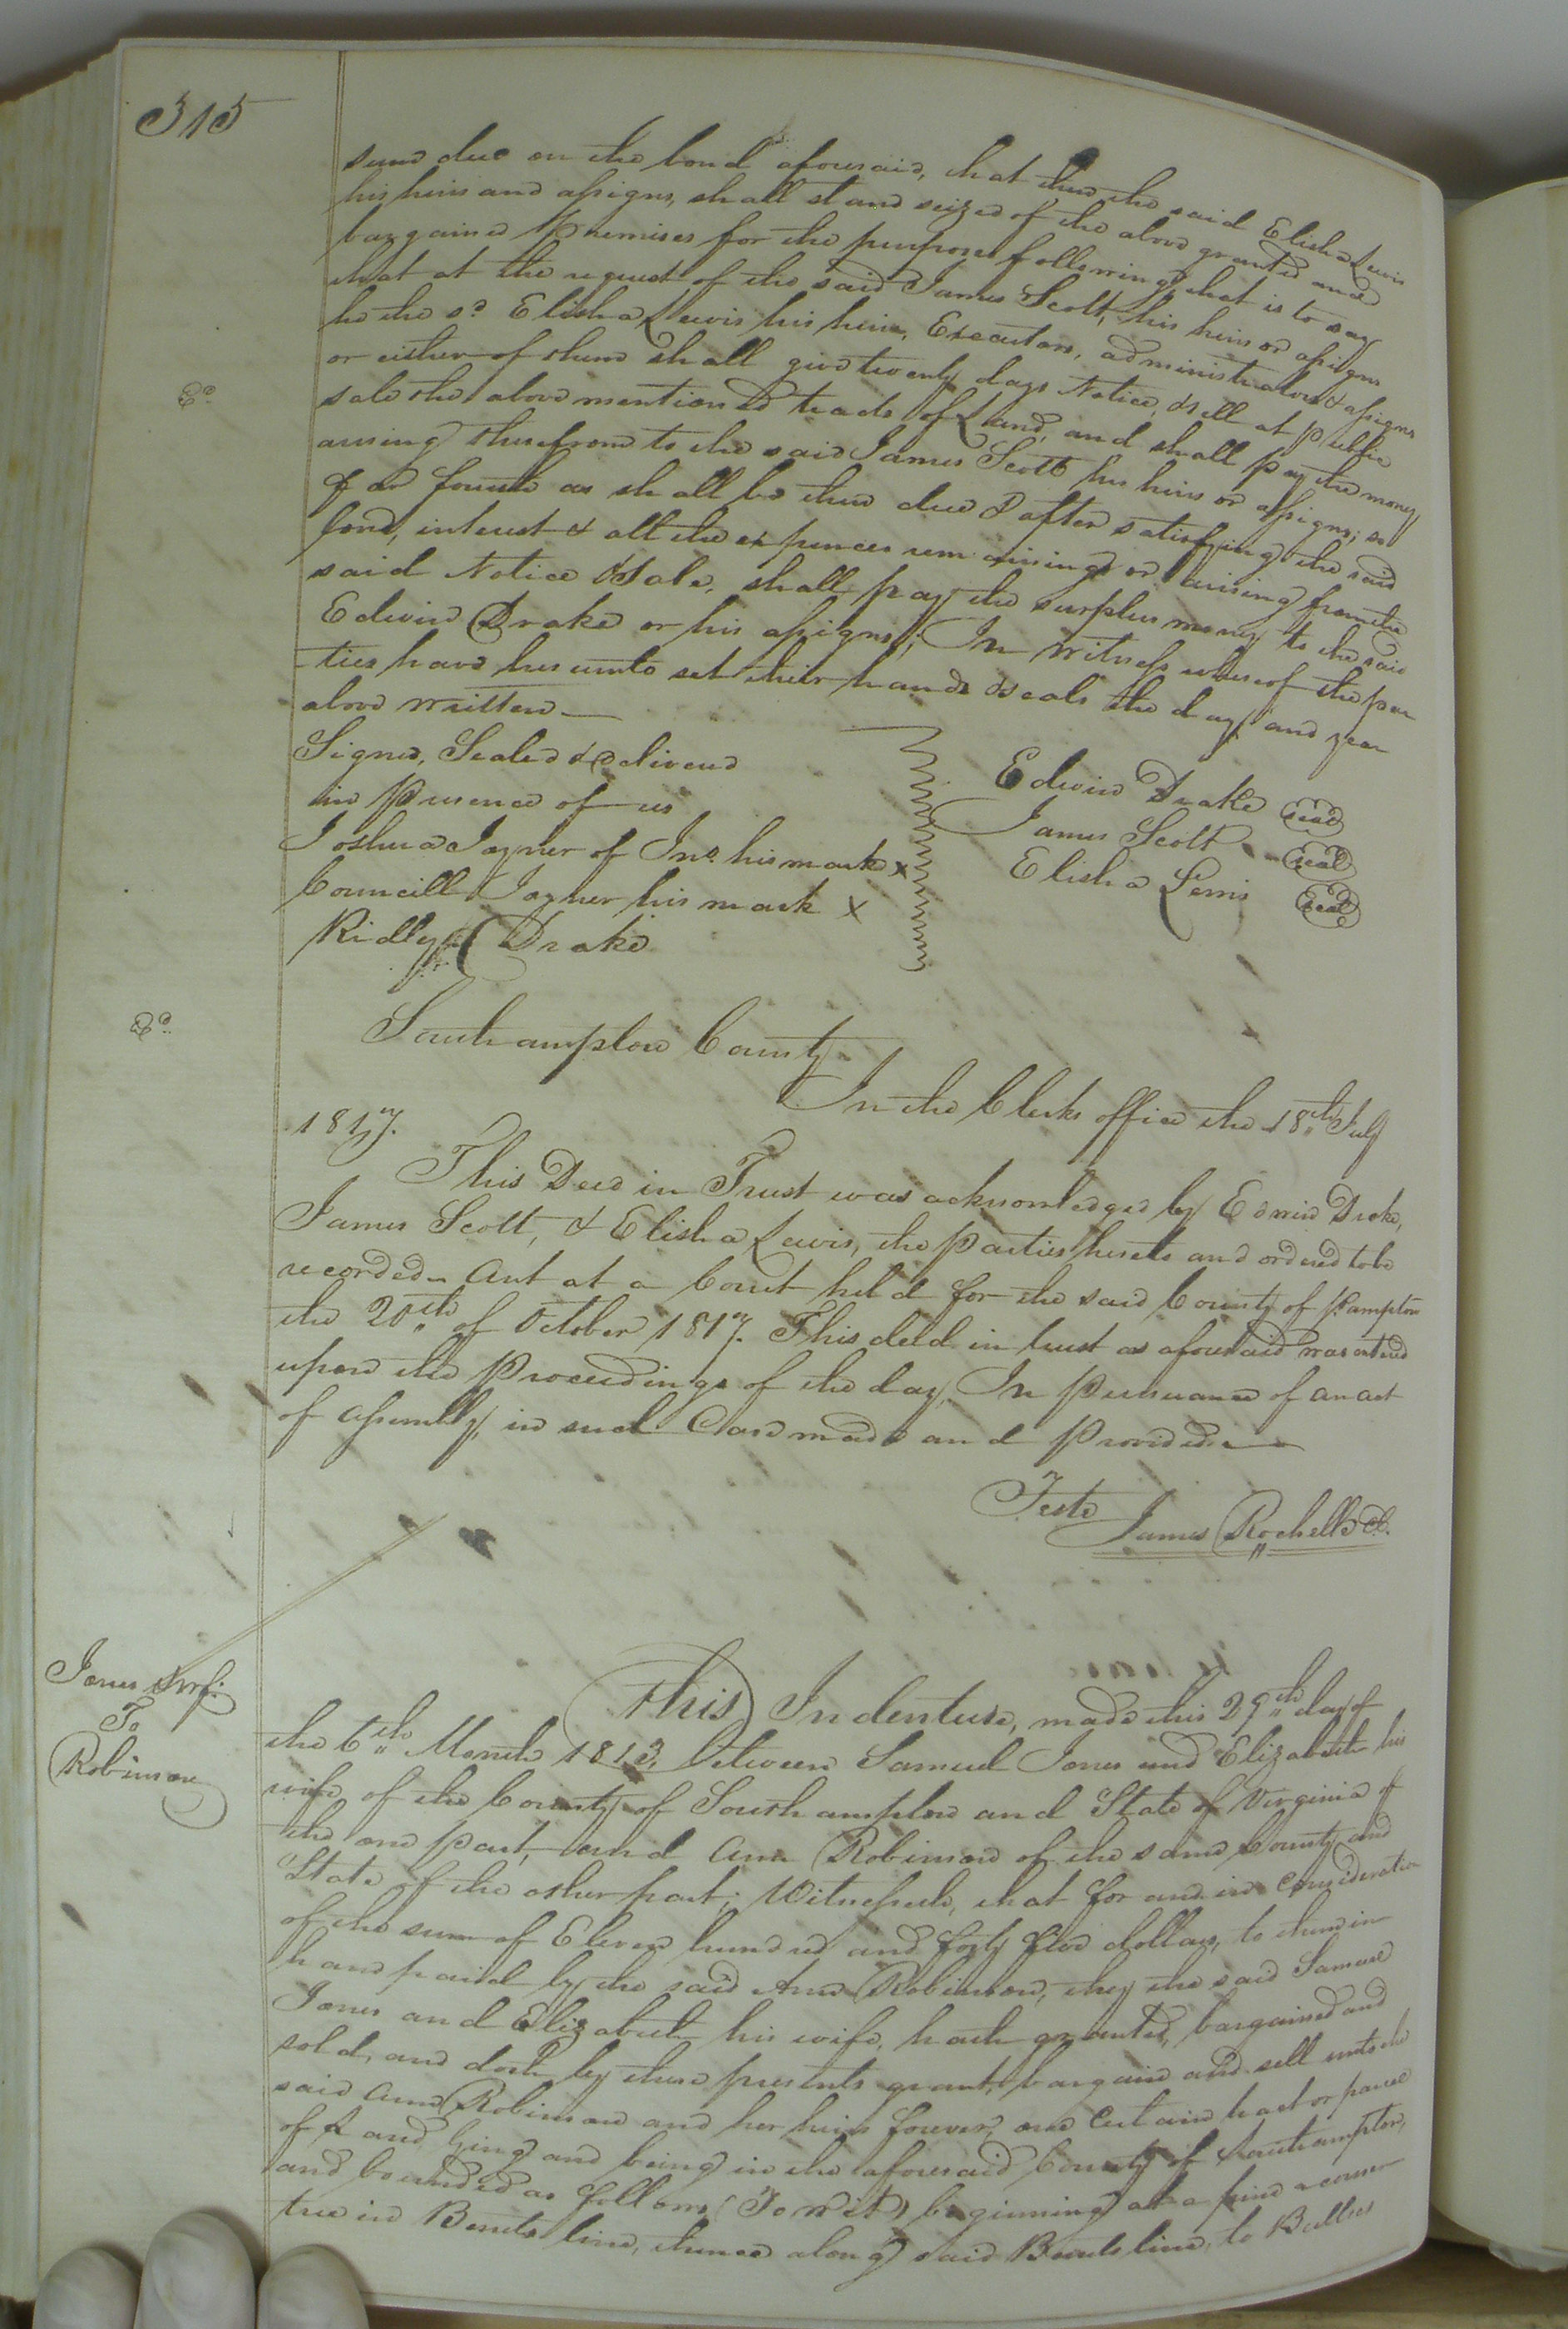 315
sum due on the bond aforesaid, that then the said Elisha Lewis
his heirs and assigns, shall stand seized of the above granted and
bargained Premises for the purposes following, that is to say
that at the request of the said James Scott, his heirs or assigns
he the sd. Elisha Lewis his heirs, Executors, administrators & assigns
or either of them shall give twenty days Notice, & sell at public
sale the above mentioned tracts of Land, and shall pay the money
arising therefrom to the said James Scott his heirs or assigns; so
far forth as shall be then due & after satisfying the said
bond, interest & all the expences remaining or arising from the
said Notice & Sale, shall pay the surplus money to the said
Edwin Drake or his assigns; In Witness whereof the par
ties have hereunto set their hands & seals the day and year
above written
Signed, Sealed & delivered
in Presence of us
Joshua Joyner of Jno. his mark x
Councill Joyner his mark x
Ridley Drake
Edwin Drake seal
James Scott seal
Elisha Lewis seal
Southampton County
In the Clerks office the 18th July
1817.
This Deed in Trust was acknowledged by Edwin Drake,
James Scott, & Elisha Lewis, the Parties hereto and ordered to be
recorded. And at a Court held for the said County of
the 20th of October 1817. This deed in trust as aforesaid was entered
upon the Proceedings of the day, In Pursuance of an act
of assembly, in such Case made and Provided
Teste
James Rochelle Cl.
Jones & wf:
To
Robinson
This Indenture, made this 29th day of
the 6th Month 1813, between Samuel Jones and Elizabeth his
wife of the County of Southampton and State of Virginia of
the one part, and Ann Robinson of the same County and
State of the other part; Witnesseth, that for and in Consideration
of the sum of Eleven hundred and forty five dollars, to them in
hand paid by the said Ann Robinson, they the said Samuel
Jones and Elizabeth his wife, hath granted, bargained and
sold, and doth by these presents grant, bargain and sell unto the
said Ann Robinson and her heirs forever, one Certain tract or parcel
of Land lying and being in the aforesaid County of Southampton,
and bounded as follows (To wit) beginning at a pine a corner
tree in Bents line, thence along said Bents line, to